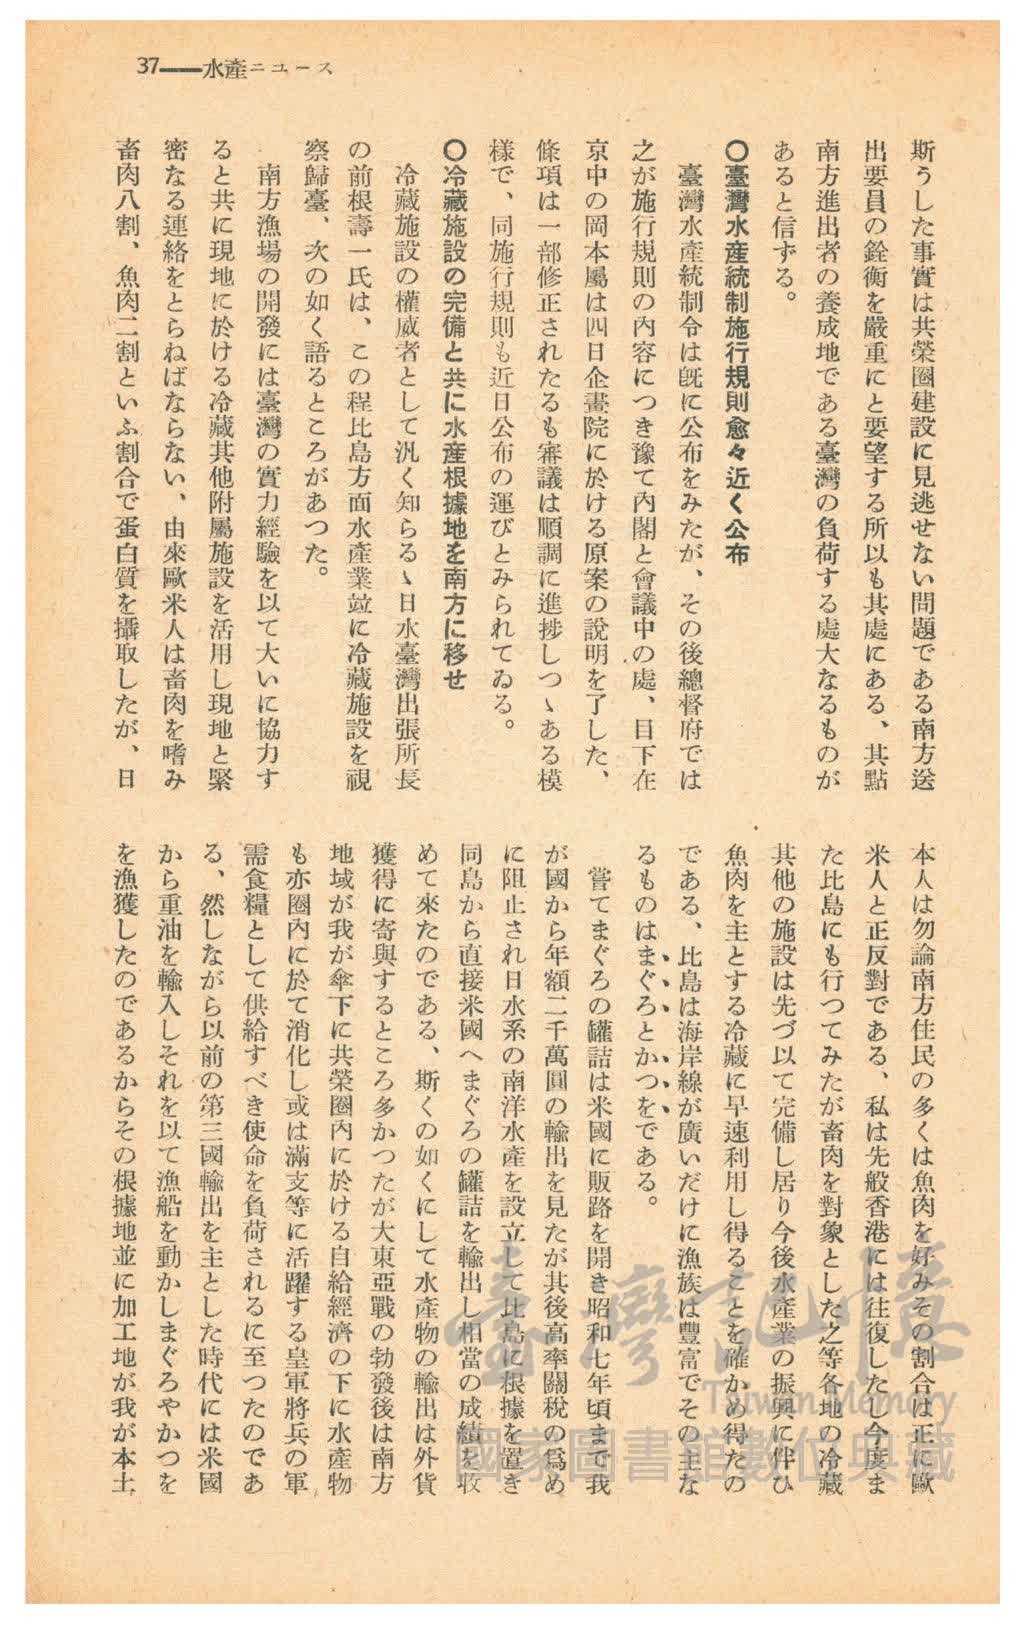 37——水產ニュース
斯うした事實は共榮圈建設に見逃せない問題である南方送
出要員の銓衡を嚴重にと要望する所以も其處にある、其點
南方進出者の養成地である臺灣の負荷する處大なるものが
あると信ずる。
〇臺灣水産統制施行規則愈々近く公布
臺灣水產統制令は旣に公布をみたが、その後總督府では
之が施行規則の內容につき豫て內閣と會議中の處、目下在
京中の岡本屬は四日企畫院に於ける原案の說明を了した、
條項は一部修正されたるも審議は順調に進捗しつヽある模
樣で、同施行規則も近日公布の運びとみられてゐる。
〇冷藏施設の完備と共に水産根據地を南方に移せ
冷藏施設の權威者として汎く知らるヽ日水臺灣出張所長
の前根壽一氏は、この程比島方面水產業竝に冷藏施設を視
察歸臺、次の如く語るところがあつた。
南方漁場の開發には臺灣の實力經驗を以て大いに協力す
ると共に現地に於ける冷藏其他附屬施設を活用し現地と緊
密なる連絡をとらねばならない、由來歐米人は畜肉を嗜み
畜肉八割、魚肉二割といふ割合で蛋白質を攝取したが、日
本人は勿論南方住民の多くは魚肉を好みその割合は正に歐
米人と正反對である、私は先般香港には往復したし今度ま
た比島にも行つてみたが畜肉を對象とした之等各地の冷藏
其他の施設は先づ以て完備し居り今後水產業の振興に伴ひ
魚肉を主とする冷藏に早速利用し得ることを確かめ得たの
である、比島は海岸線が廣いだけに漁族は豐富でその主な
るものはまぐろとかつをである。
嘗てまぐろの罐詰は米國に販路を開き昭和七年頃まで我
が國から年額二千萬圓の輸出を見たが其後高率關稅の爲め
に阻止され日水系の南洋水產を設立して比島に根據を置き
同島から直接米國へまぐろの罐詰を輸出し相當の成績を收
めて來たのである、斯くの如くにして水產物の輸出は外貨
獲得に寄與するところ多かつたが大東亞戰の勃發後は南方
地域が我が傘下に共榮圈內に於ける自給經濟の下に水產物
も亦圈內に於て消化し或は滿支等に活躍する皇軍將兵の軍
需食糧として供給すべき使命を負荷されるに至つたのであ
る、然しながら以前の第三國輸出を主とした時代には米國
から重油を輸入しそれを以て漁船を動かしまぐろやかつを
を漁獲したのであるからその根據地並に加工地が我が本土
臺灣記憶
Taiwan Memory
國家圖書館數位典藏